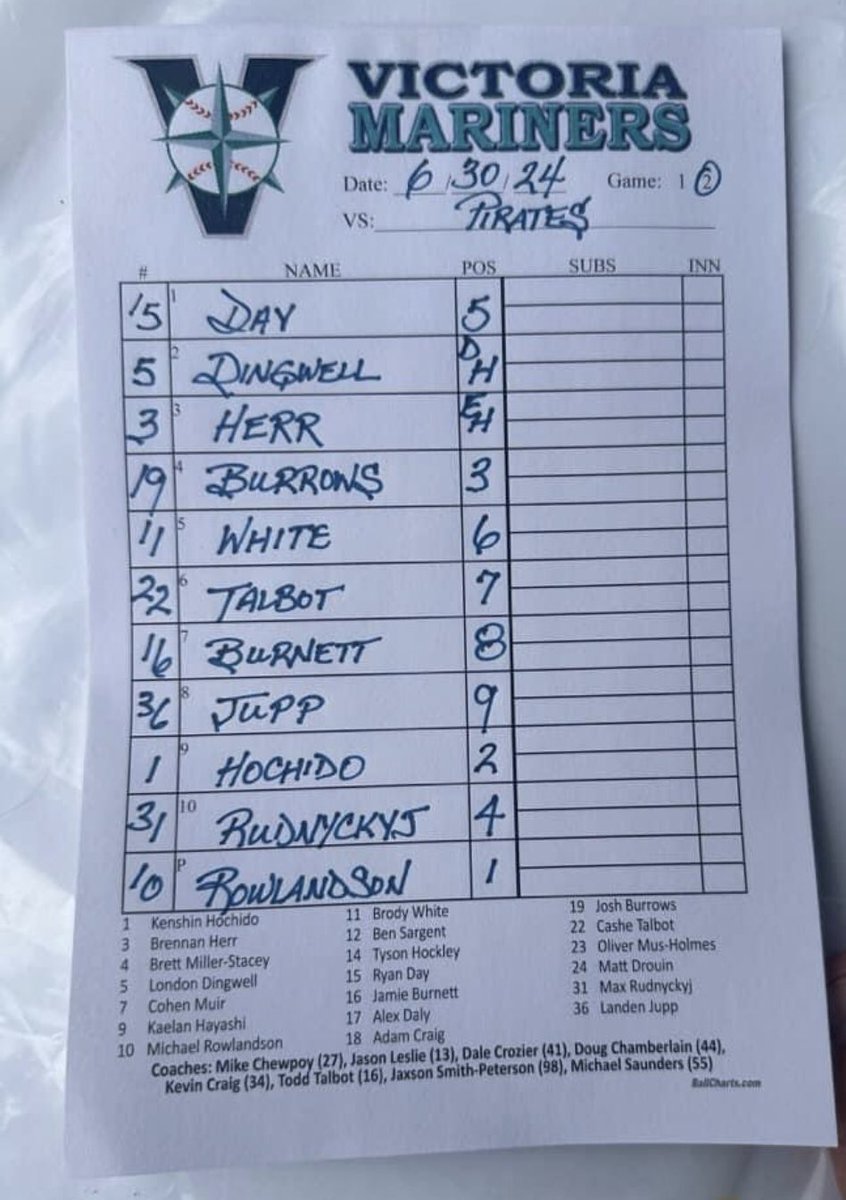 VICTORIA
MARINERS
Date: 6/30/24 Game: 1 2
VS: PIRATES
# NAME POS SUBS INN
15 1 DAY 5
5 2 DINGWELL DH
3 3 HERR EH
19 4 BURROWS 3
11 5 WHITE 6
22 6 TALBOT 7
16 7 BURNETT 8
36 8 JUPP 9
1 9 HOCHIDO 2
31 10 RUDNYCKYJ 4
10 P ROWLANDSON 1
1 Kenshin Hochido
3 Brennan Herr
4 Brett Miller-Stacey
5 London Dingwell
7 Cohen Muir
9 Kaelan Hayashi
10 Michael Rowlandson
11 Brody White
12 Ben Sargent
14 Tyson Hockley
15 Ryan Day
16 Jamie Burnett
17 Alex Daly
18 Adam Craig
19 Josh Burrows
22 Cashe Talbot
23 Oliver Mus-Holmes
24 Matt Drouin
31 Max Rudnyckyj
36 Landen Jupp
Coaches: Mike Chewpoy (27), Jason Leslie (13), Dale Crozier (41), Doug Chamberlain (44),
Kevin Craig (34), Todd Talbot (16), Jaxson Smith-Peterson (98), Michael Saunders (55)
BallCharts.com